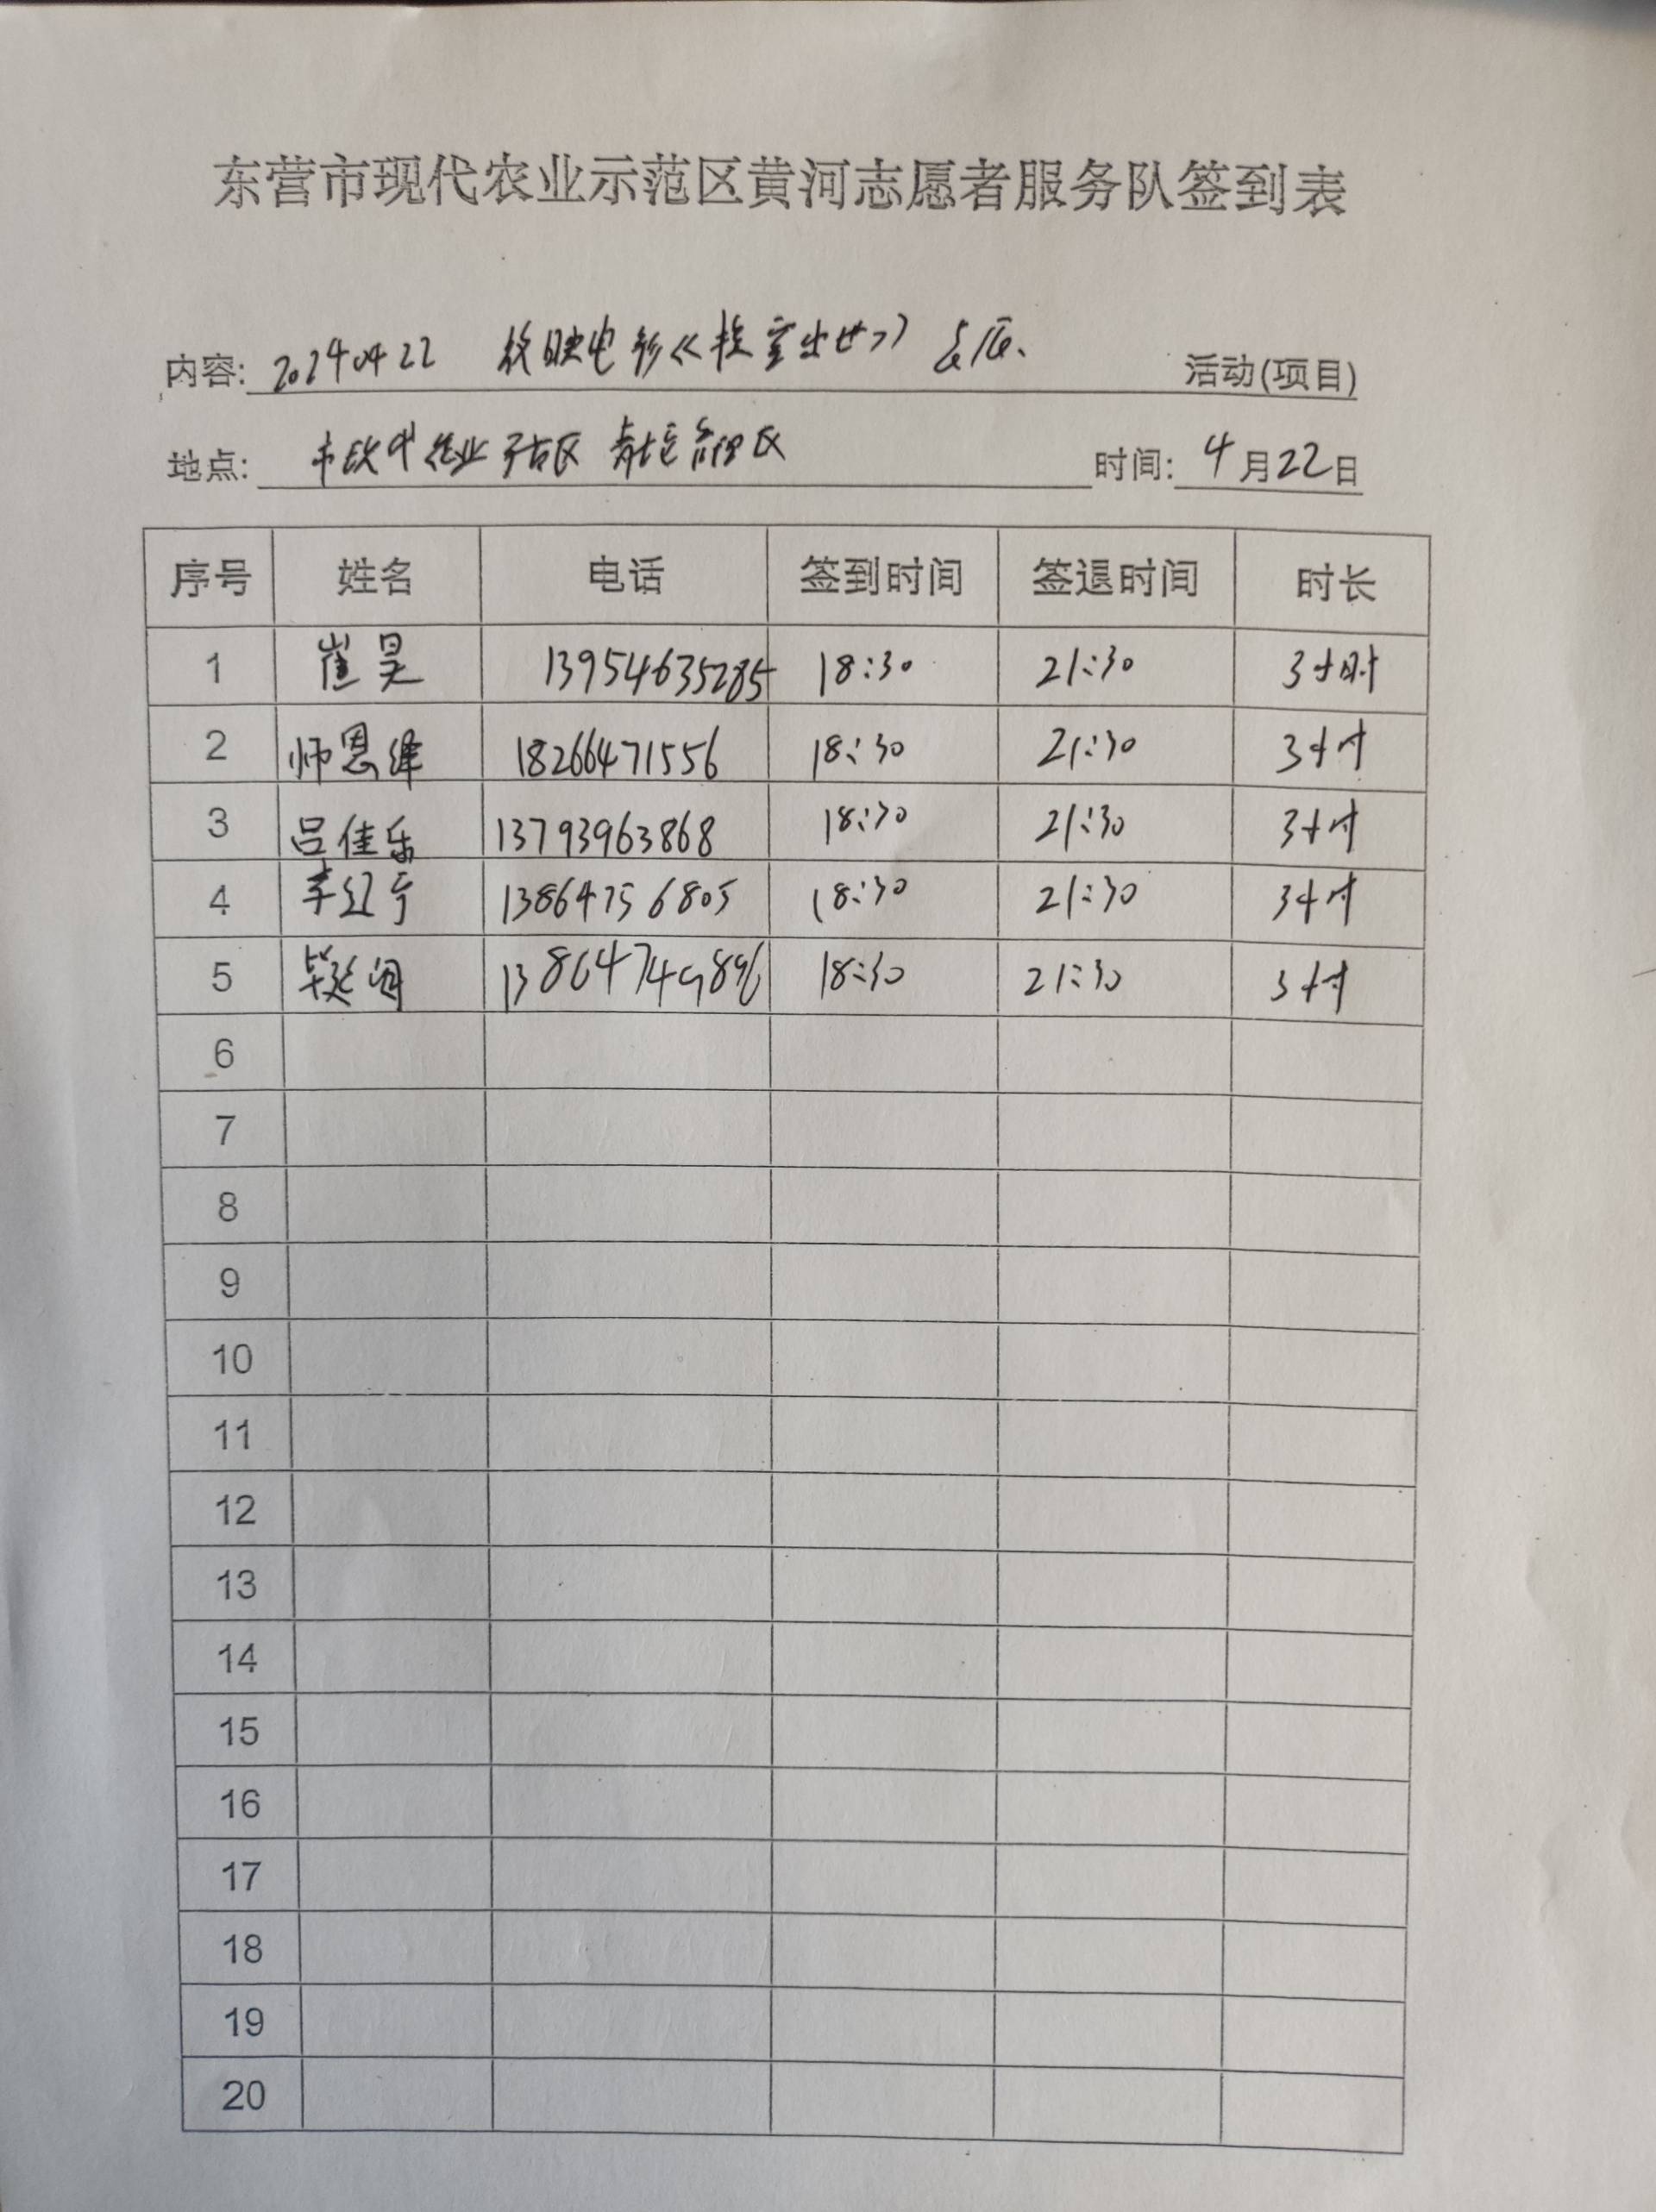 东营市现代农业示范区黄河志愿者服务队签到表
内容: 20240422 放映电影《横空出世》 活动(项目)
地点: 市现代农业示范区 管理区 时间: 4月22日
序号 姓名 电话 签到时间 签退时间 时长
1 崔昊 13954635285 18:30 21:30 3小时
2 师恩泽 18266471556 18:30 21:30 3小时
3 吕佳乐 13793963868 18:30 21:30 3小时
4 李红宁 13864756805 18:30 21:30 3小时
5 18:30 21:30 3小时
6
7
8
9
10
11
12
13
14
15
16
17
18
19
20